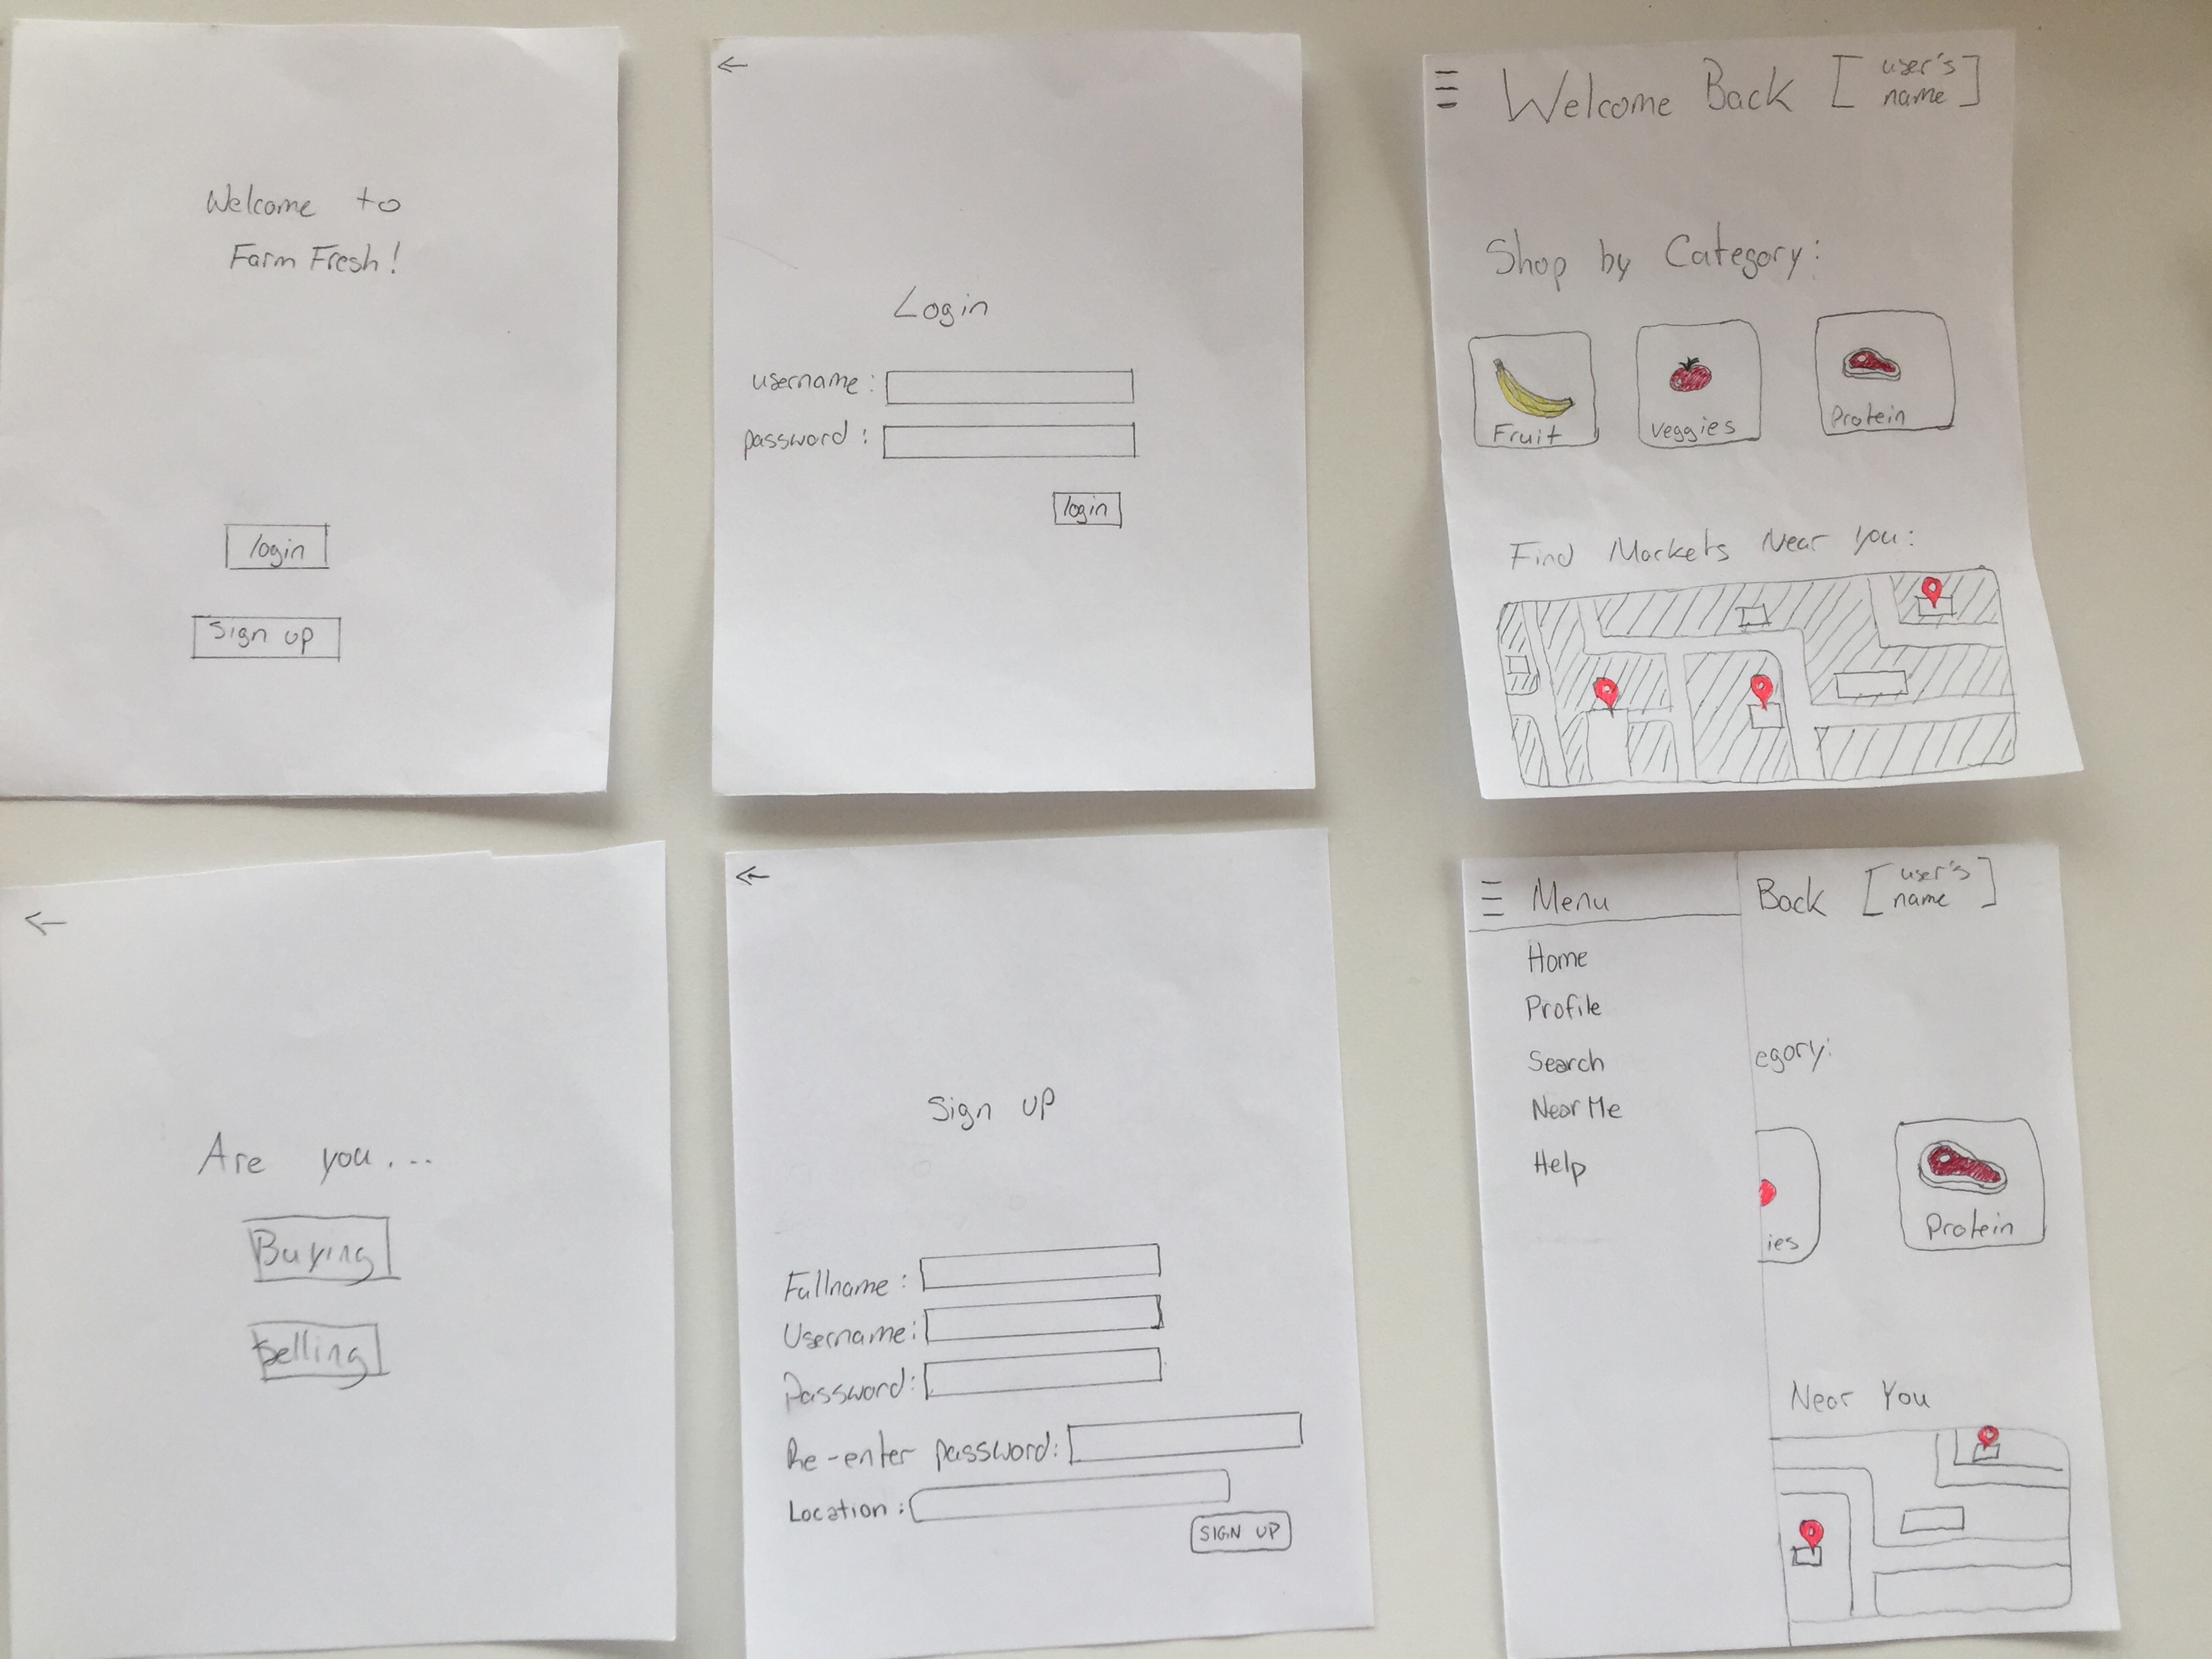 Welcome to
Farm Fresh!
login
Sign up
Login
username:
password:
login
Welcome Back [user's name]
Shop by Category:
Fruit
veggies
Protein
Find Markets Near you:
Are you...
Buying
Selling
Sign up
Fullname:
Username:
Password:
Re-enter password:
Location:
SIGN UP
Menu
Back [user's name]
Home
Profile
Search
Near Me
Help
egory:
ies
Protein
Near You